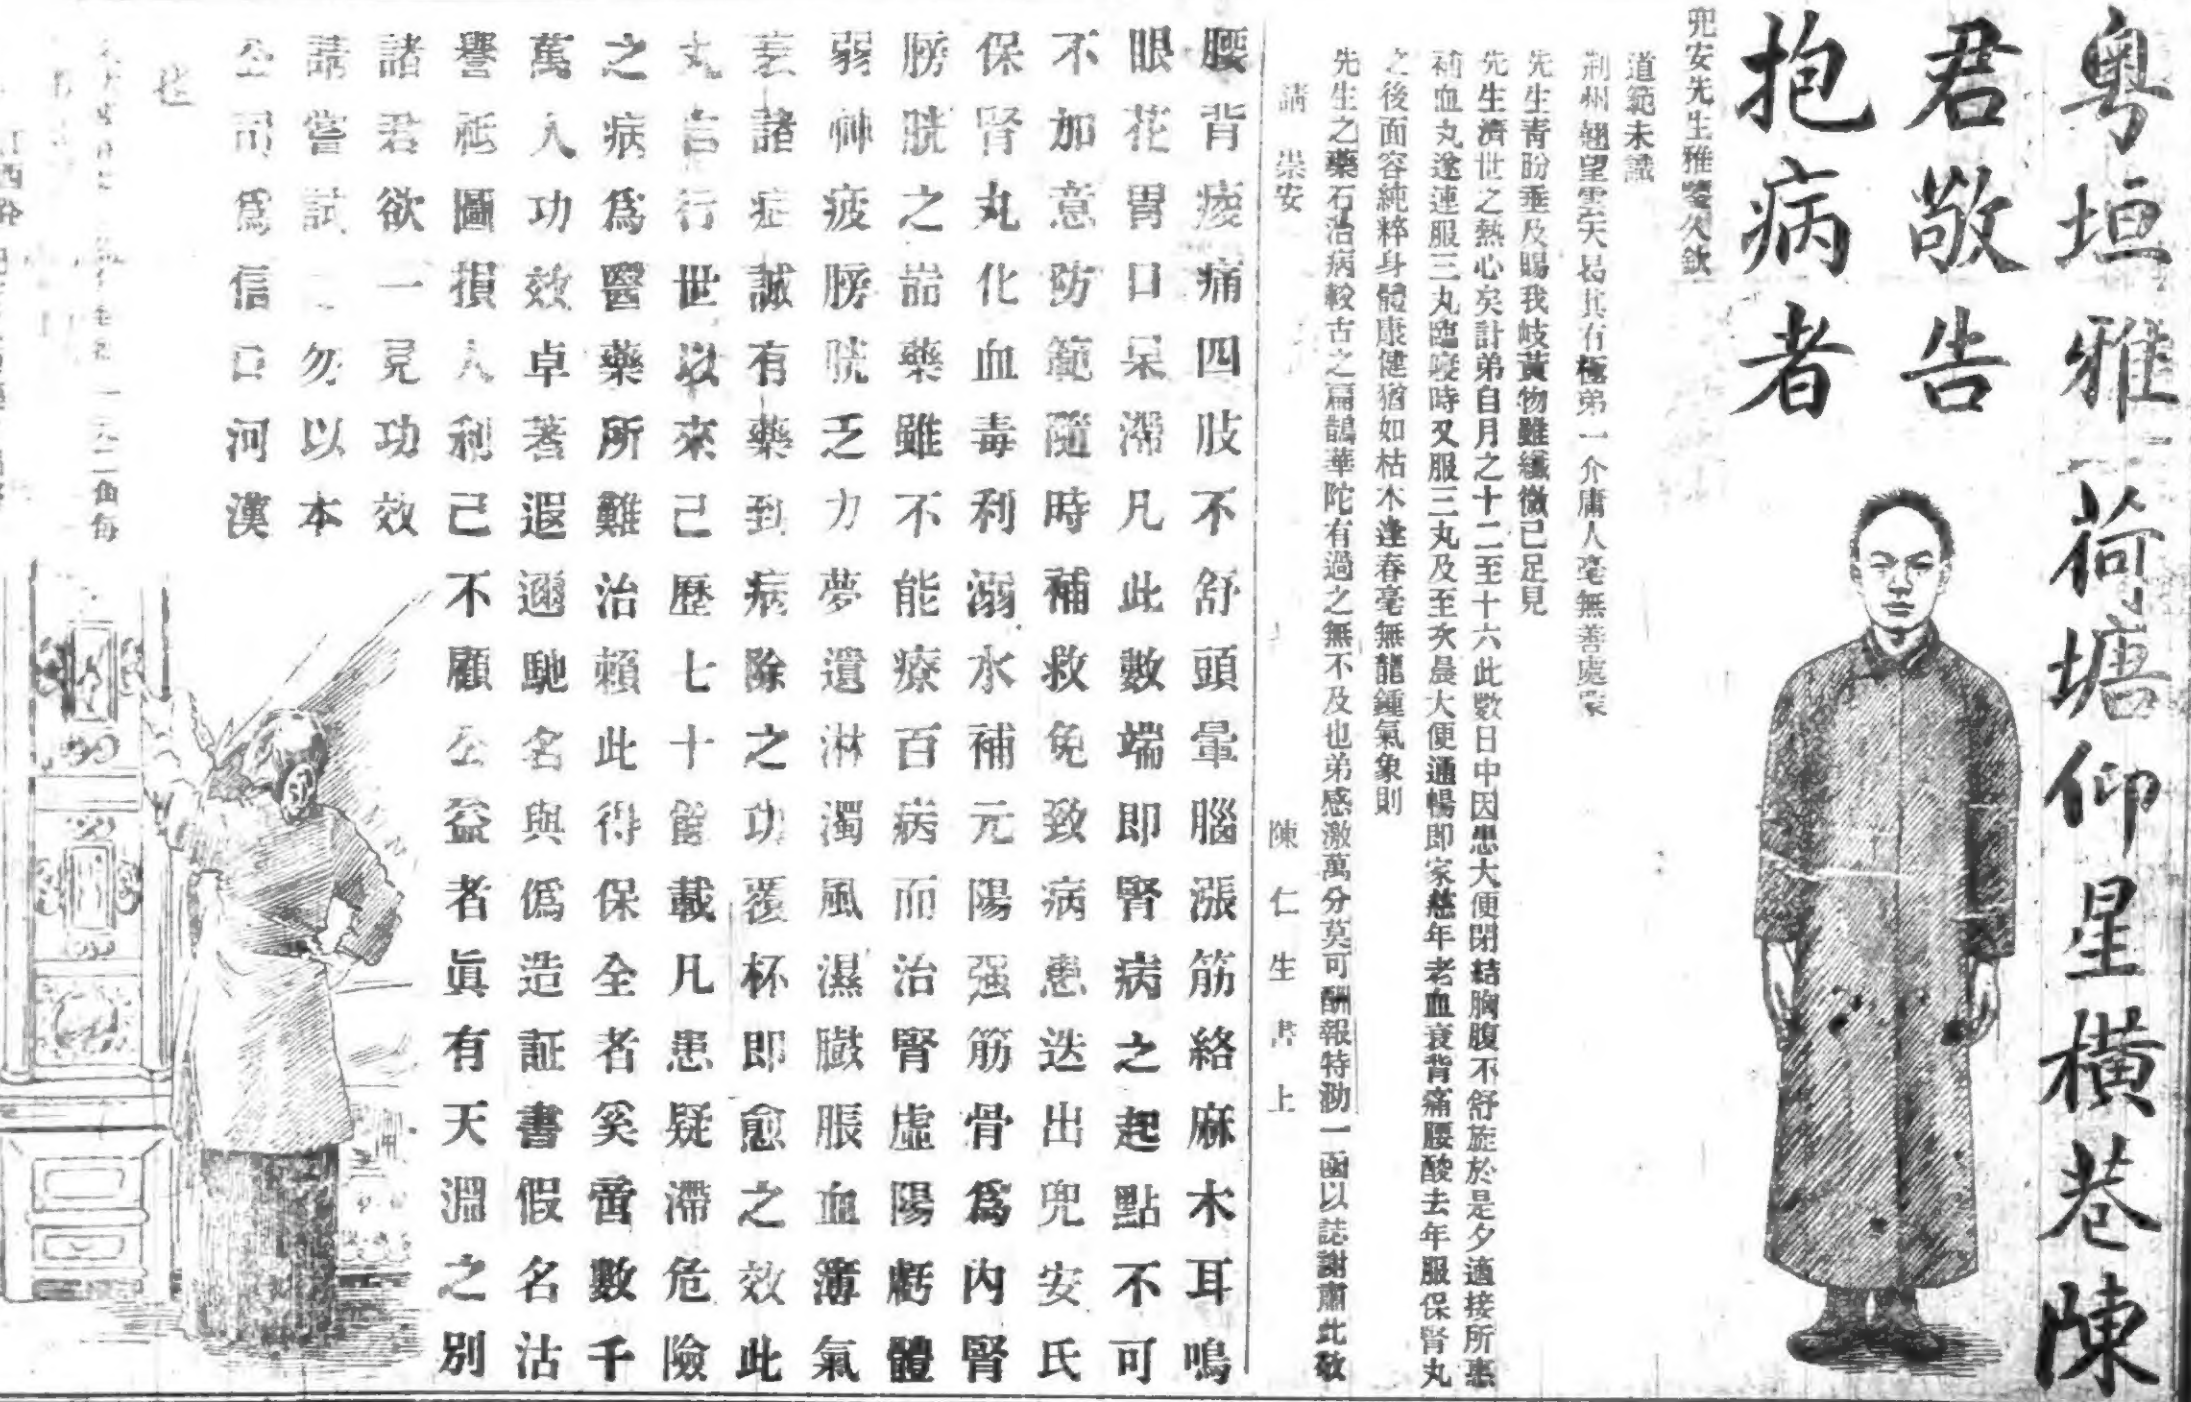 粤垣雅荷塘仰星橫巷陳
君敬告
抱病者
兜安先生雅鑒久欽
道範未識
荆州翹望雲天曷其有極弟一介庸人毫無善處蒙
先生青盼垂及賜我岐黃物雖纖微己足見
先生濟世之熱心矣計弟自月之十二至十六此數日中因患大便閉結胸腹不舒旋於是夕適接所惠
補血丸遂連服三丸臨寢時又服三丸及至次晨大便通暢即家慈年老血衰背痛腰酸去年服保腎丸
之後面容純粹身體康健猶如枯木逢春毫無龍鍾氣象則
先生之藥石治病較古之扁鵲華陀有過之無不及也弟感激萬分莫可酬報特泐一函以誌謝肅此敬
請 崇安 陳仁生書上
腰背痠痛四肢不舒頭暈腦漲筋絡麻木耳鳴
眼花胃口呆滯凡此數端即腎病之起點不可
不加意防範隨時補救免致病患迭出兜安氏
保腎丸化血毒利溺水補元陽强筋骨爲內腎
膀胱之耑藥雖不能療百病而治腎虛陽虧體
弱神疲膀胱乏力夢遺淋濁風濕臌脹血薄氣
衰諸症誠有藥到病除之功覆杯即愈之效此
丸自行世以來己歷七十餘載凡患疑滯危險
之病爲醫藥所難治賴此得保全者奚啻數千
萬人功效卓著遐邇馳名與僞造証書假名沽
譽祗圖損人利己不顧公益者眞有天淵之別
諸君欲一見功效
請嘗試之勿以本
公司爲信口河漢
也